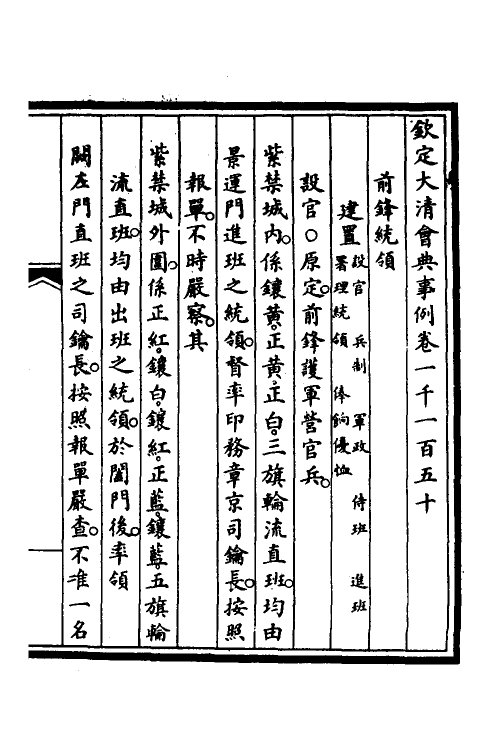 欽定大清會典事例卷一千一百五十
前鋒統領
建置設官 兵制 軍政 侍班 進班
署理統領 俸餉優恤
設官○原定。前鋒護軍營官兵。
紫禁城內。係鑲黃。正黃。正白。三旗輪流直班。均由
景運門進班之統領。督率印務章京司鑰長。按照
報單。不時嚴察。其
紫禁城外圍。係正紅。鑲白。鑲紅。正藍。鑲藍。五旗輪
流直班。均由出班之統領。於闔門後。率領
闕左門直班之司鑰長。按照報單嚴查。不准一名